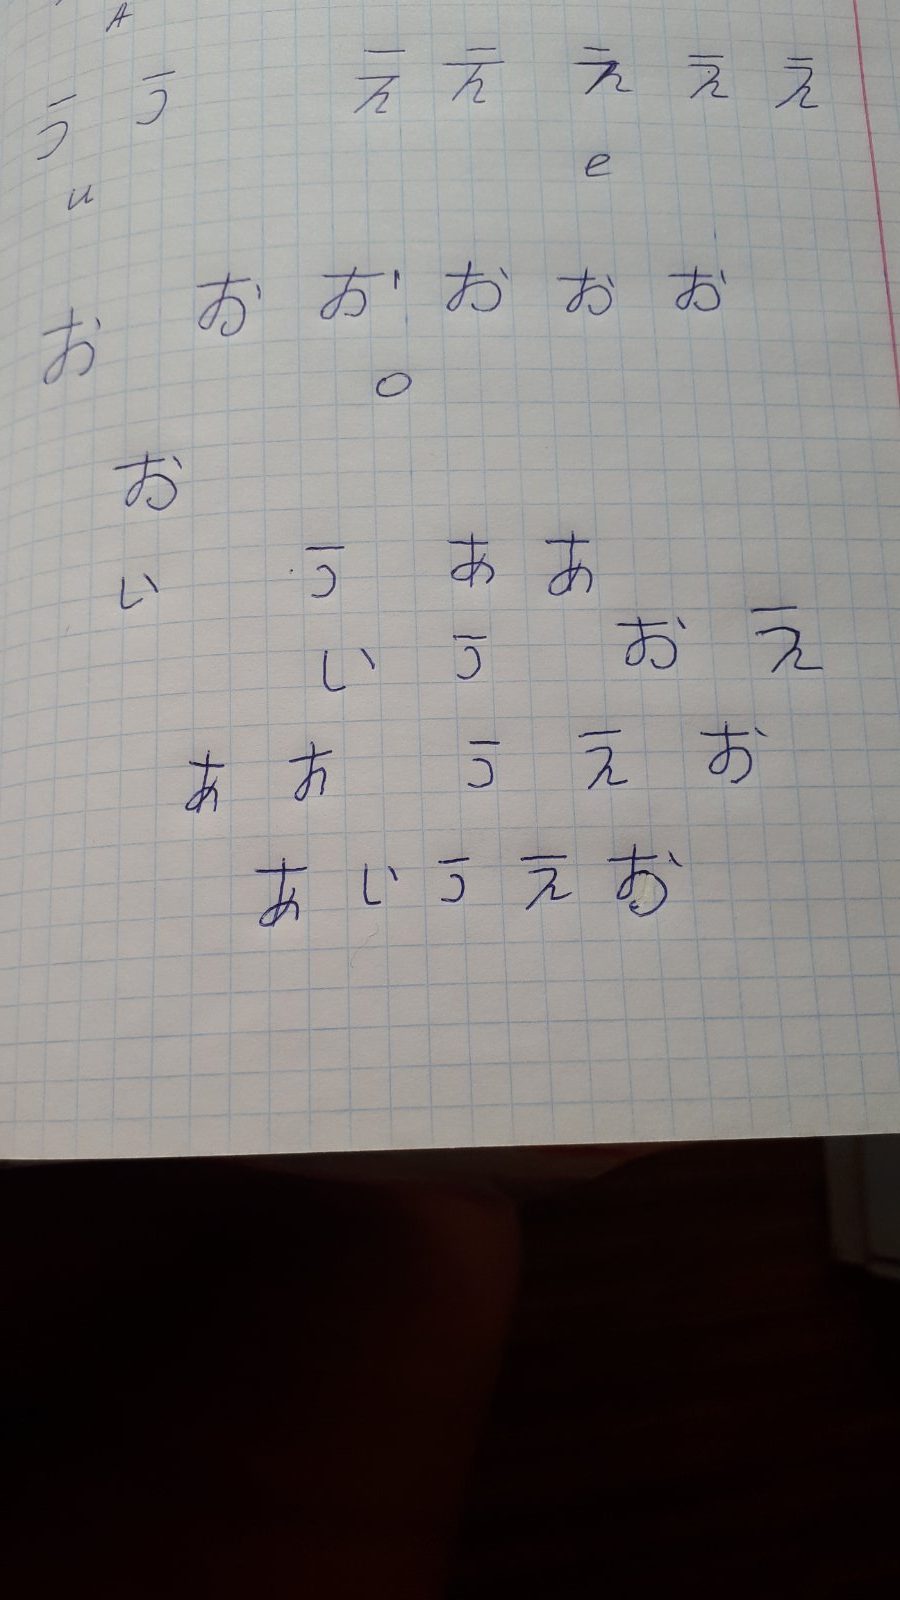 A
う う え え え え え
u e
お お お お お お
o
お
い う あ あ
い う お え
あ あ う え お
あ い う え お